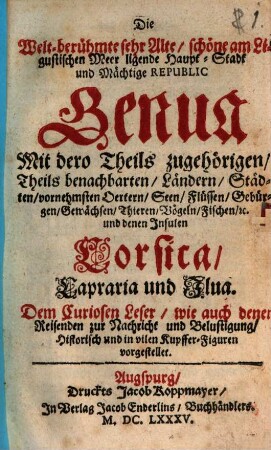 Die
Welt-berühmte sehr Alte/ schöne am Li-
gustischen Meer ligende Haupt-Stadt
und Mächtige REPUBLIC
Genua
Mit dero Theils zugehörigen/
Theils benachbarten/ Ländern/ Städ-
ten/ vornehmsten Oertern/ Seen/ Flüssen/ Gebür-
gen/ Gewächsen/ Thieren/ Vögeln/ Fischen/ ꝛc.
und denen Insulen
Corsica/
Capraria und Ilua.
Dem Curiosen Leser/ wie auch denen
Reisenden zur Nachricht und Belustigung/
Historisch und in vilen Kupffer-Figuren
vorgestellet.
Augspurg/
Druckts Jacob Koppmayer/
In Verlag Jacob Enderlins/ Buchhändlers.
M. DC. LXXXV.